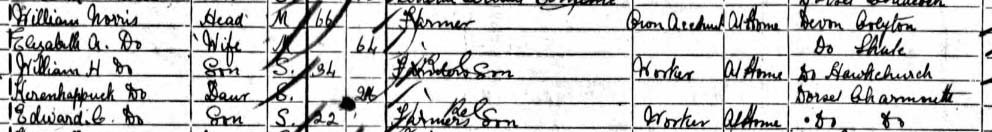 William Norris Head M 66 Farmer Own Account At Home Devon Colyton
Elizabeth A. Do Wife M 64 Do Shute
William H Do Son S. 34 Farmers Son Worker At Home Do Hawkchurch
Kerenhappuck Do Daur S. Dorset Charmouth
Edward C. Do Son S. 22 Farmers Son Worker At Home Do Do